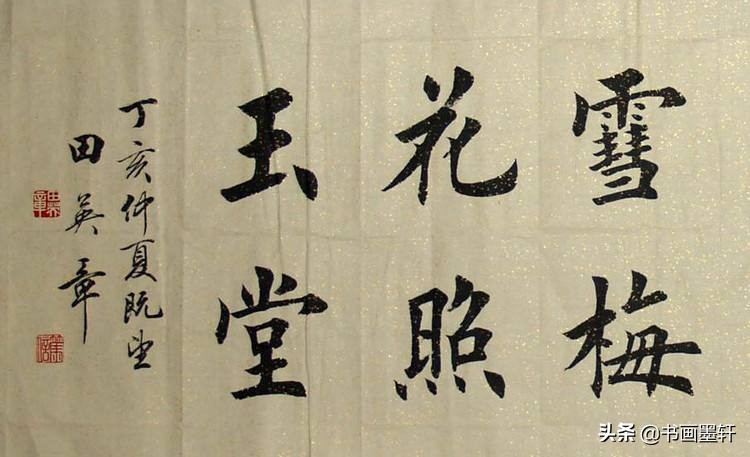 雪梅
花照
玉堂
丁亥仲夏既望
田英章
田英章
头条 @书画墨轩